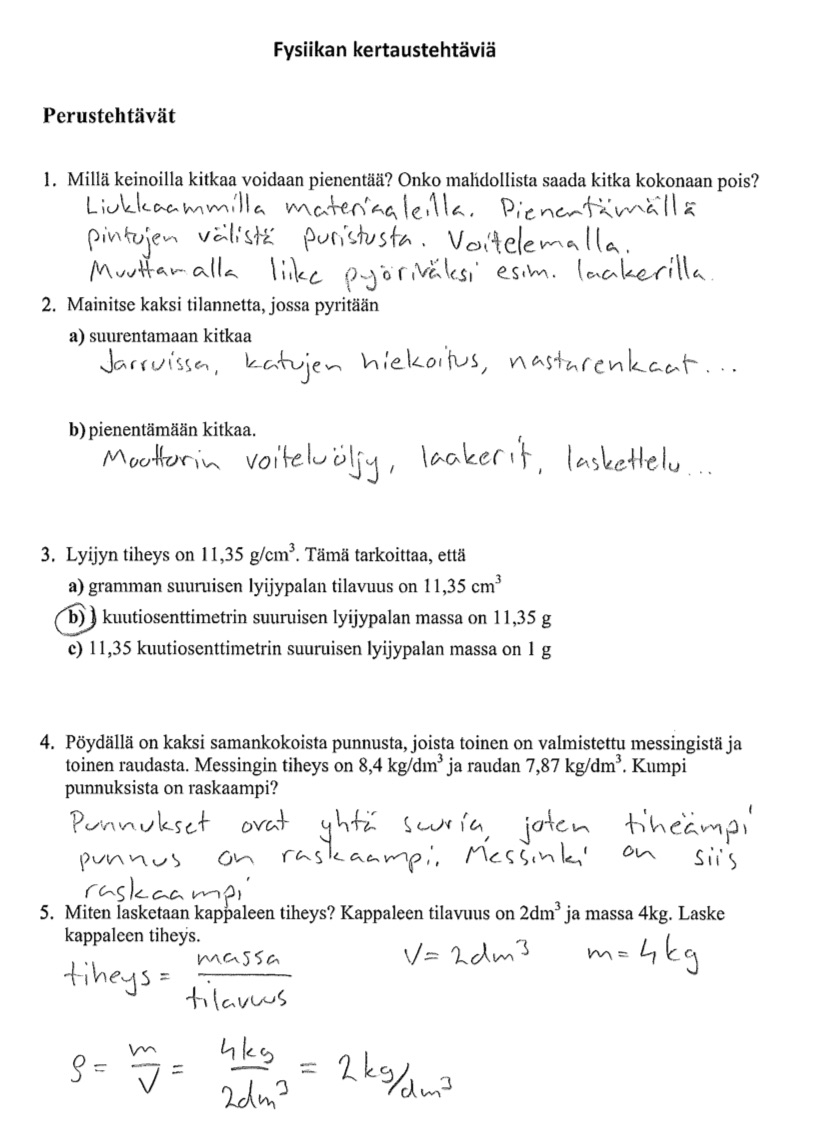 Fysiikan kertaustehtäviä
Perustehtävät
1. Millä keinoilla kitkaa voidaan pienentää? Onko mahdollista saada kitka kokonaan pois?
Liukkaammilla materiaaleilla. Pienentämällä
pintojen välistä puristusta. Voitelemalla.
Muuttamalla liike pyöriväksi esim. laakerilla.
2. Mainitse kaksi tilannetta, jossa pyritään
a) suurentamaan kitkaa
Jarruissa, katujen hiekoitus, nastarenkaat...
b) pienentämään kitkaa.
Moottorin voiteluöljy, laakerit, laskettelu...
3. Lyijyn tiheys on 11,35 g/cm³. Tämä tarkoittaa, että
a) gramman suuruisen lyijypalan tilavuus on 11,35 cm³
b) ) kuutiosenttimetrin suuruisen lyijypalan massa on 11,35 g
c) 11,35 kuutiosenttimetrin suuruisen lyijypalan massa on 1 g
4. Pöydällä on kaksi samankokoista punnusta, joista toinen on valmistettu messingistä ja
toinen raudasta. Messingin tiheys on 8,4 kg/dm³ ja raudan 7,87 kg/dm³. Kumpi
punnuksista on raskaampi?
Punnukset ovat yhtä suuria, joten tiheämpi
punnus on raskaampi. Messinki on siis
raskaampi
5. Miten lasketaan kappaleen tiheys? Kappaleen tilavuus on 2dm³ ja massa 4kg. Laske
kappaleen tiheys.
tiheys = massa / tilavuus V = 2dm³ m = 4kg
ρ = m/V = 4kg/2dm³ = 2kg/dm³